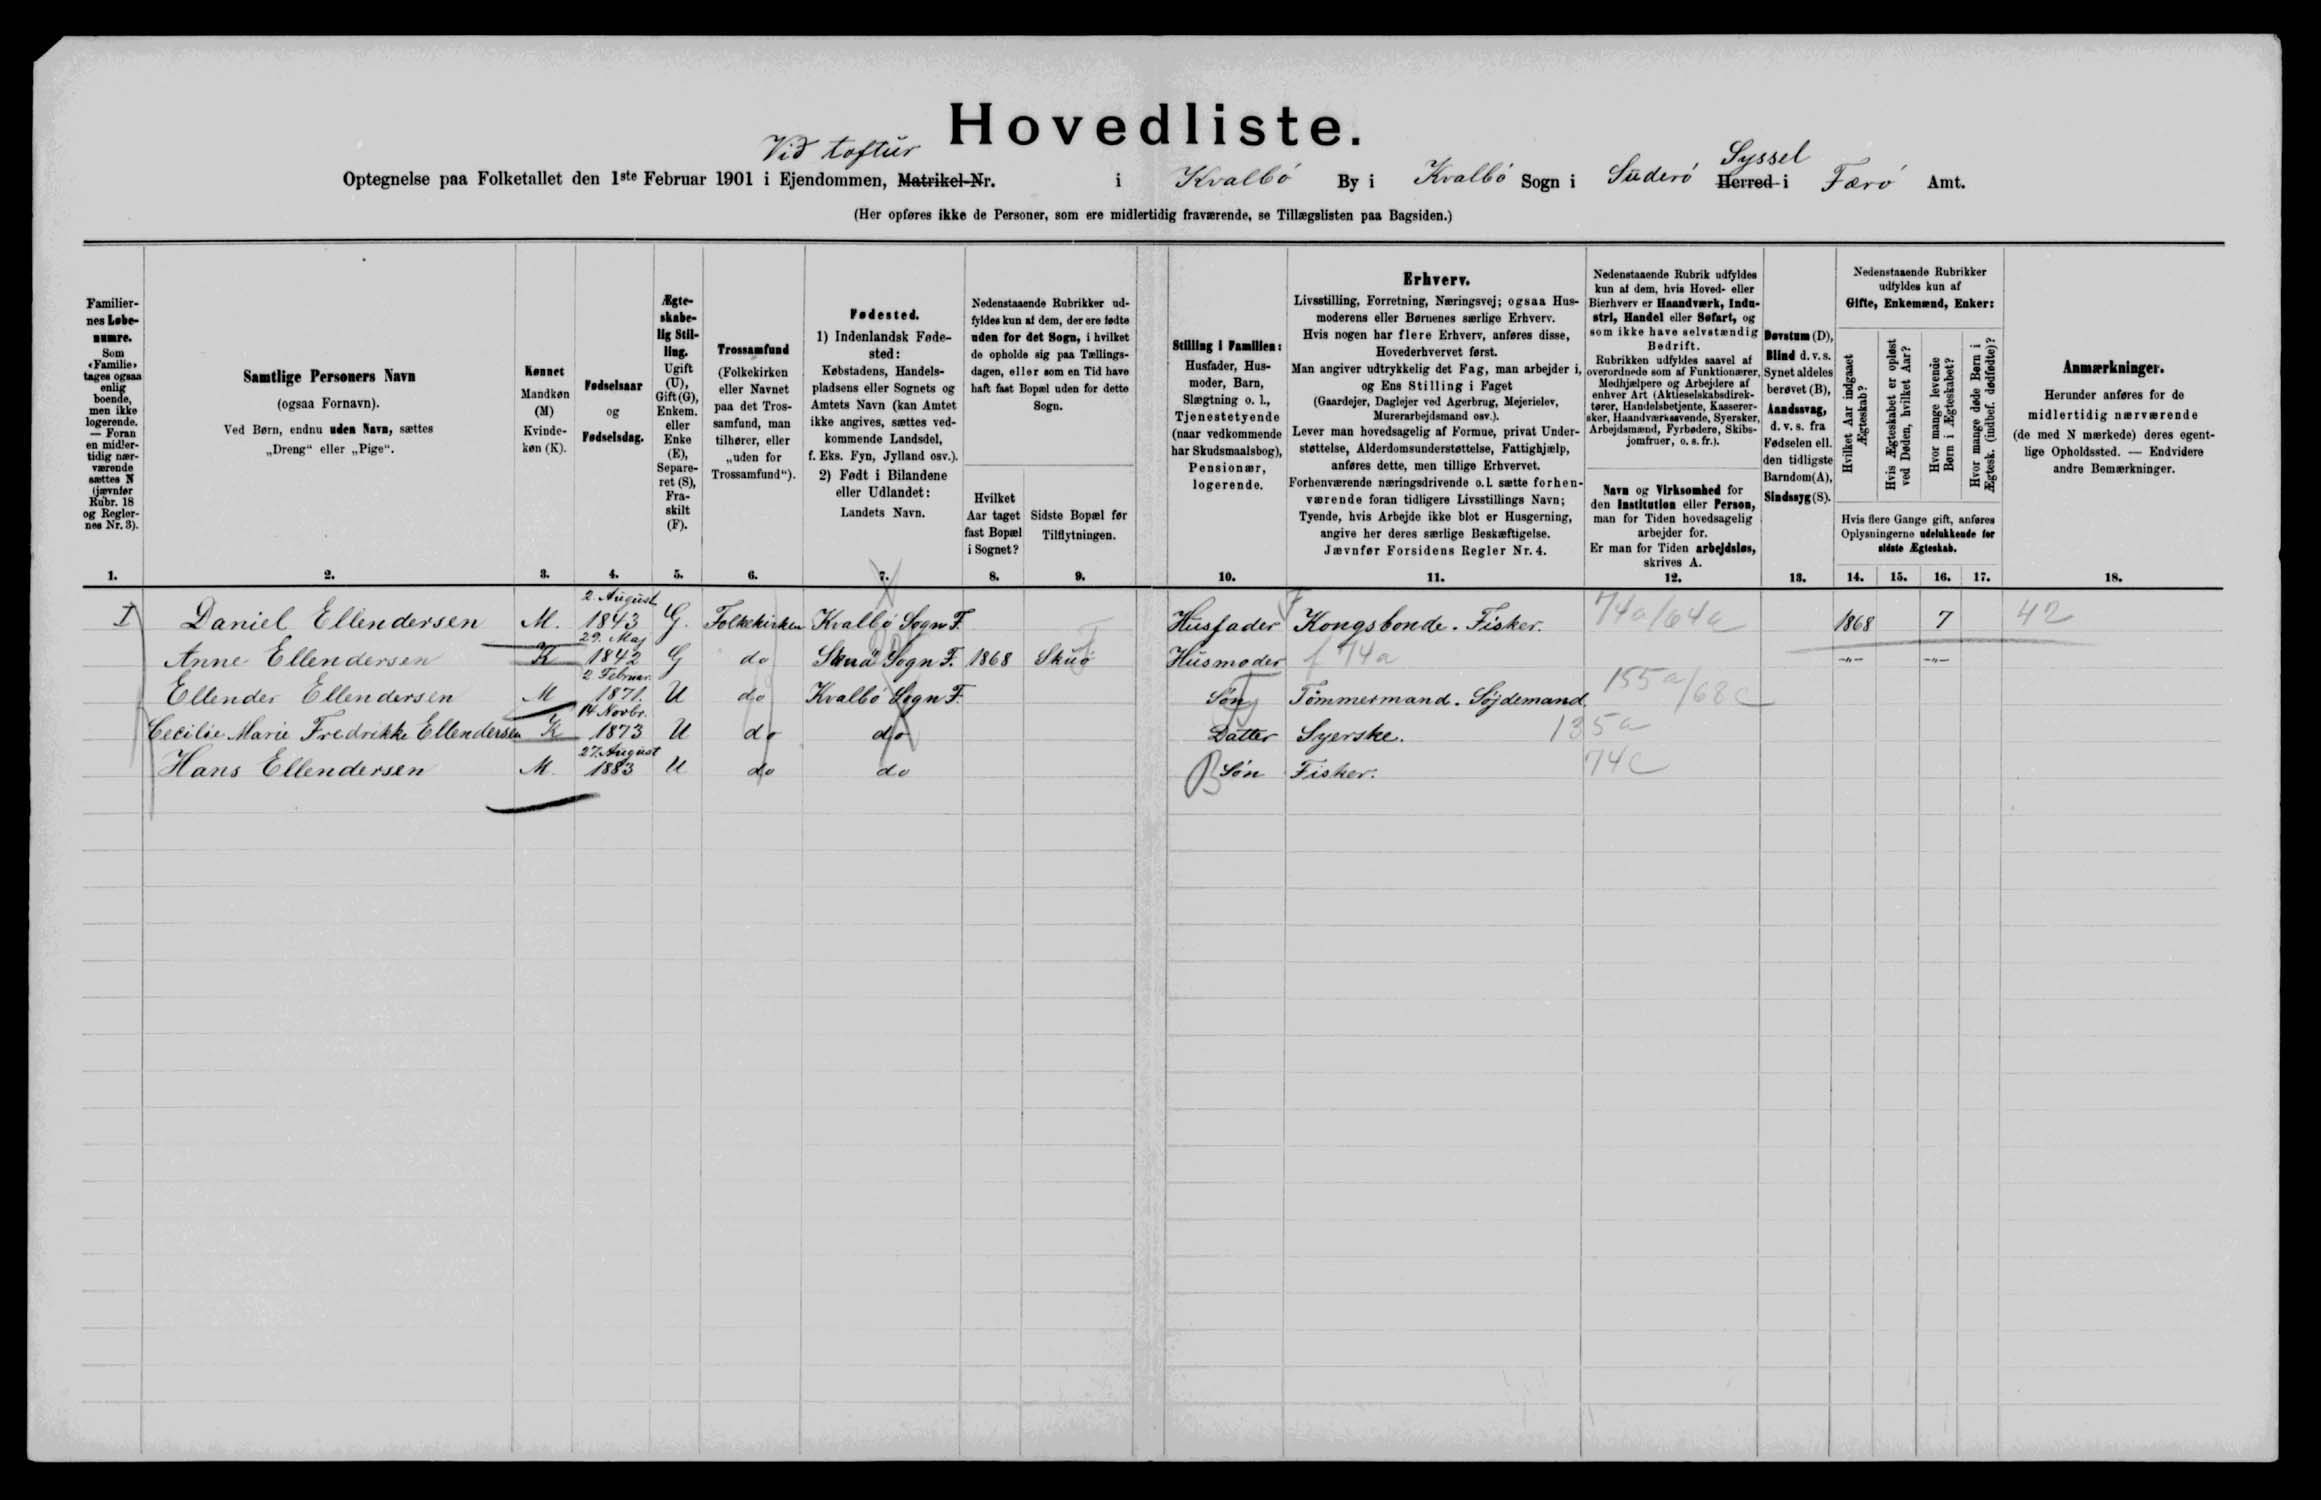 Hovedliste.
Vid toftur
Syssel
Optegnelse paa Folketallet den 1ste Februar 1901 i Ejendommen, Matrikel-Nr. i Kvalbø By i Kvalbø Sogn i Suderø Herred i Færø Amt.
(Her opføres ikke de Personer, som ere midlertidig fraværende, se Tillægslisten paa Bagsiden.)
Familier-
nes Løbe-
numre.
Som
«Familie»
tages ogsaa
enlig
boende,
men ikke
logerende.
— Foran
en midler-
tidig nær-
værende
sættes N
(jævnfør
Rubr. 18
og Regler-
nes Nr. 3).
1.
Samtlige Personers Navn
(ogsaa Fornavn).
Ved Børn, endnu uden Navn, sættes
„Dreng“ eller „Pige“.
2.
Kønnet
Mandkøn
(M)
Kvinde-
køn (K).
3.
Fødselsaar
og
Fødselsdag.
4.
Ægte-
skabe-
lig Stil-
ling.
Ugift
(U),
Gift (G),
Enkem.
eller
Enke
(E),
Separe-
ret (S),
Fra-
skilt
(F).
5.
Trossamfund
(Folkekirken
eller Navnet
paa det Tros-
samfund, man
tilhører, eller
„uden for
Trossamfund“).
6.
Fødested.
1) Indenlandsk Føde-
sted:
Købstadens, Handels-
pladsens eller Sognets og
Amtets Navn (kan Amtet
ikke angives, sættes ved-
kommende Landsdel,
f. Eks. Fyn, Jylland osv.).
2) Født i Bilandene
eller Udlandet:
Landets Navn.
7.
Nedenstaaende Rubrikker ud-
fyldes kun af dem, der ere fødte
uden for det Sogn, i hvilket
de opholde sig paa Tællings-
dagen, eller som en Tid have
haft fast Bopæl uden for dette
Sogn.
Hvilket
Aar taget
fast Bopæl
i Sognet?
8.
Sidste Bopæl før
Tilflytningen.
9.
Stilling i Familien:
Husfader, Hus-
moder, Barn,
Slægtning o. l.,
Tjenestetyende
(naar vedkommende
har Skudsmaalsbog),
Pensionær,
logerende.
10.
Erhverv.
Livsstilling, Forretning, Næringsvej; ogsaa Hus-
moderens eller Børnenes særlige Erhverv.
Hvis nogen har flere Erhverv, anføres disse,
Hovederhvervet først.
Man angiver udtrykkelig det Fag, man arbejder i,
og Ens Stilling i Faget
(Gaardejer, Daglejer ved Agerbrug, Mejerielev,
Murerarbejdsmand osv.).
Lever man hovedsagelig af Formue, privat Under-
støttelse, Alderdomsunderstøttelse, Fattighjælp,
anføres dette, men tillige Erhvervet.
Forhenværende næringsdrivende o. l. sætte forhen-
værende foran tidligere Livsstillings Navn;
Tyende, hvis Arbejde ikke blot er Husgerning,
angive her deres særlige Beskæftigelse.
Jævnfør Forsidens Regler Nr. 4.
11.
Nedenstaaende Rubrik udfyldes
kun af dem, hvis Hoved- eller
Bierhverv er Haandværk, Indu-
stri, Handel eller Søfart, og
som ikke have selvstændig
Bedrift.
Rubrikken udfyldes saavel af
overordnede som af Funktionærer,
Medhjælpere og Arbejdere af
enhver Art (Aktieselskabsdirek-
tører, Handelsbetjente, Kasserer-
sker, Haandværkssvende, Syersker,
Arbejdsmænd, Fyrbødere, Skibs-
jomfruer, o. s. fr.).
Navn og Virksomhed for
den Institution eller Person,
man for Tiden hovedsagelig
arbejder for.
Er man for Tiden arbejdsløs,
skrives A.
12.
Døvstum (D),
Blind d. v. s.
Synet aldeles
berøvet (B),
Aandssvag,
d. v. s. fra
Fødselen ell.
den tidligste
Barndom (A),
Sindssyg (S).
13.
Nedenstaaende Rubrikker
udfyldes kun af
Gifte, Enkemænd, Enker:
Hvilket Aar indgaaet
Ægteskab?
Hvis Ægteskabet er opløst
ved Døden, hvilket Aar?
Hvor mange levende
Børn i Ægteskabet?
Hvor mange døde Børn i
Ægtesk. (indbef. dødfødte)?
Hvis flere Gange gift, anføres
Oplysningerne udelukkende for
sidste Ægteskab.
14. 15. 16. 17.
Anmærkninger.
Herunder anføres for de
midlertidig nærværende
(de med N mærkede) deres egent-
lige Opholdssted. — Endvidere
andre Bemærkninger.
18.
I Daniel Ellendersen M. 2. August 1843 G. Folkekirken Kvalbø Sogn F. Husfader Kongsbonde. Fisker. 74a/64a 1868 7 42
Anne Ellendersen K 29. Maj 1842 G do Skuø Sogn F. 1868 Skuø Husmoder f 74a -„- -„-
Ellender Ellendersen M 2 Februar. 1871. U do Kvalbø Sogn F. Søn Tømmermand. Søjdemand. 155a/68c
Cecilie Marie Fredrikke Ellendersen K 14 Novbr. 1873 U do do Datter Syerske. 135a
Hans Ellendersen M. 27. August 1883 U do do B Søn Fisker. 74c